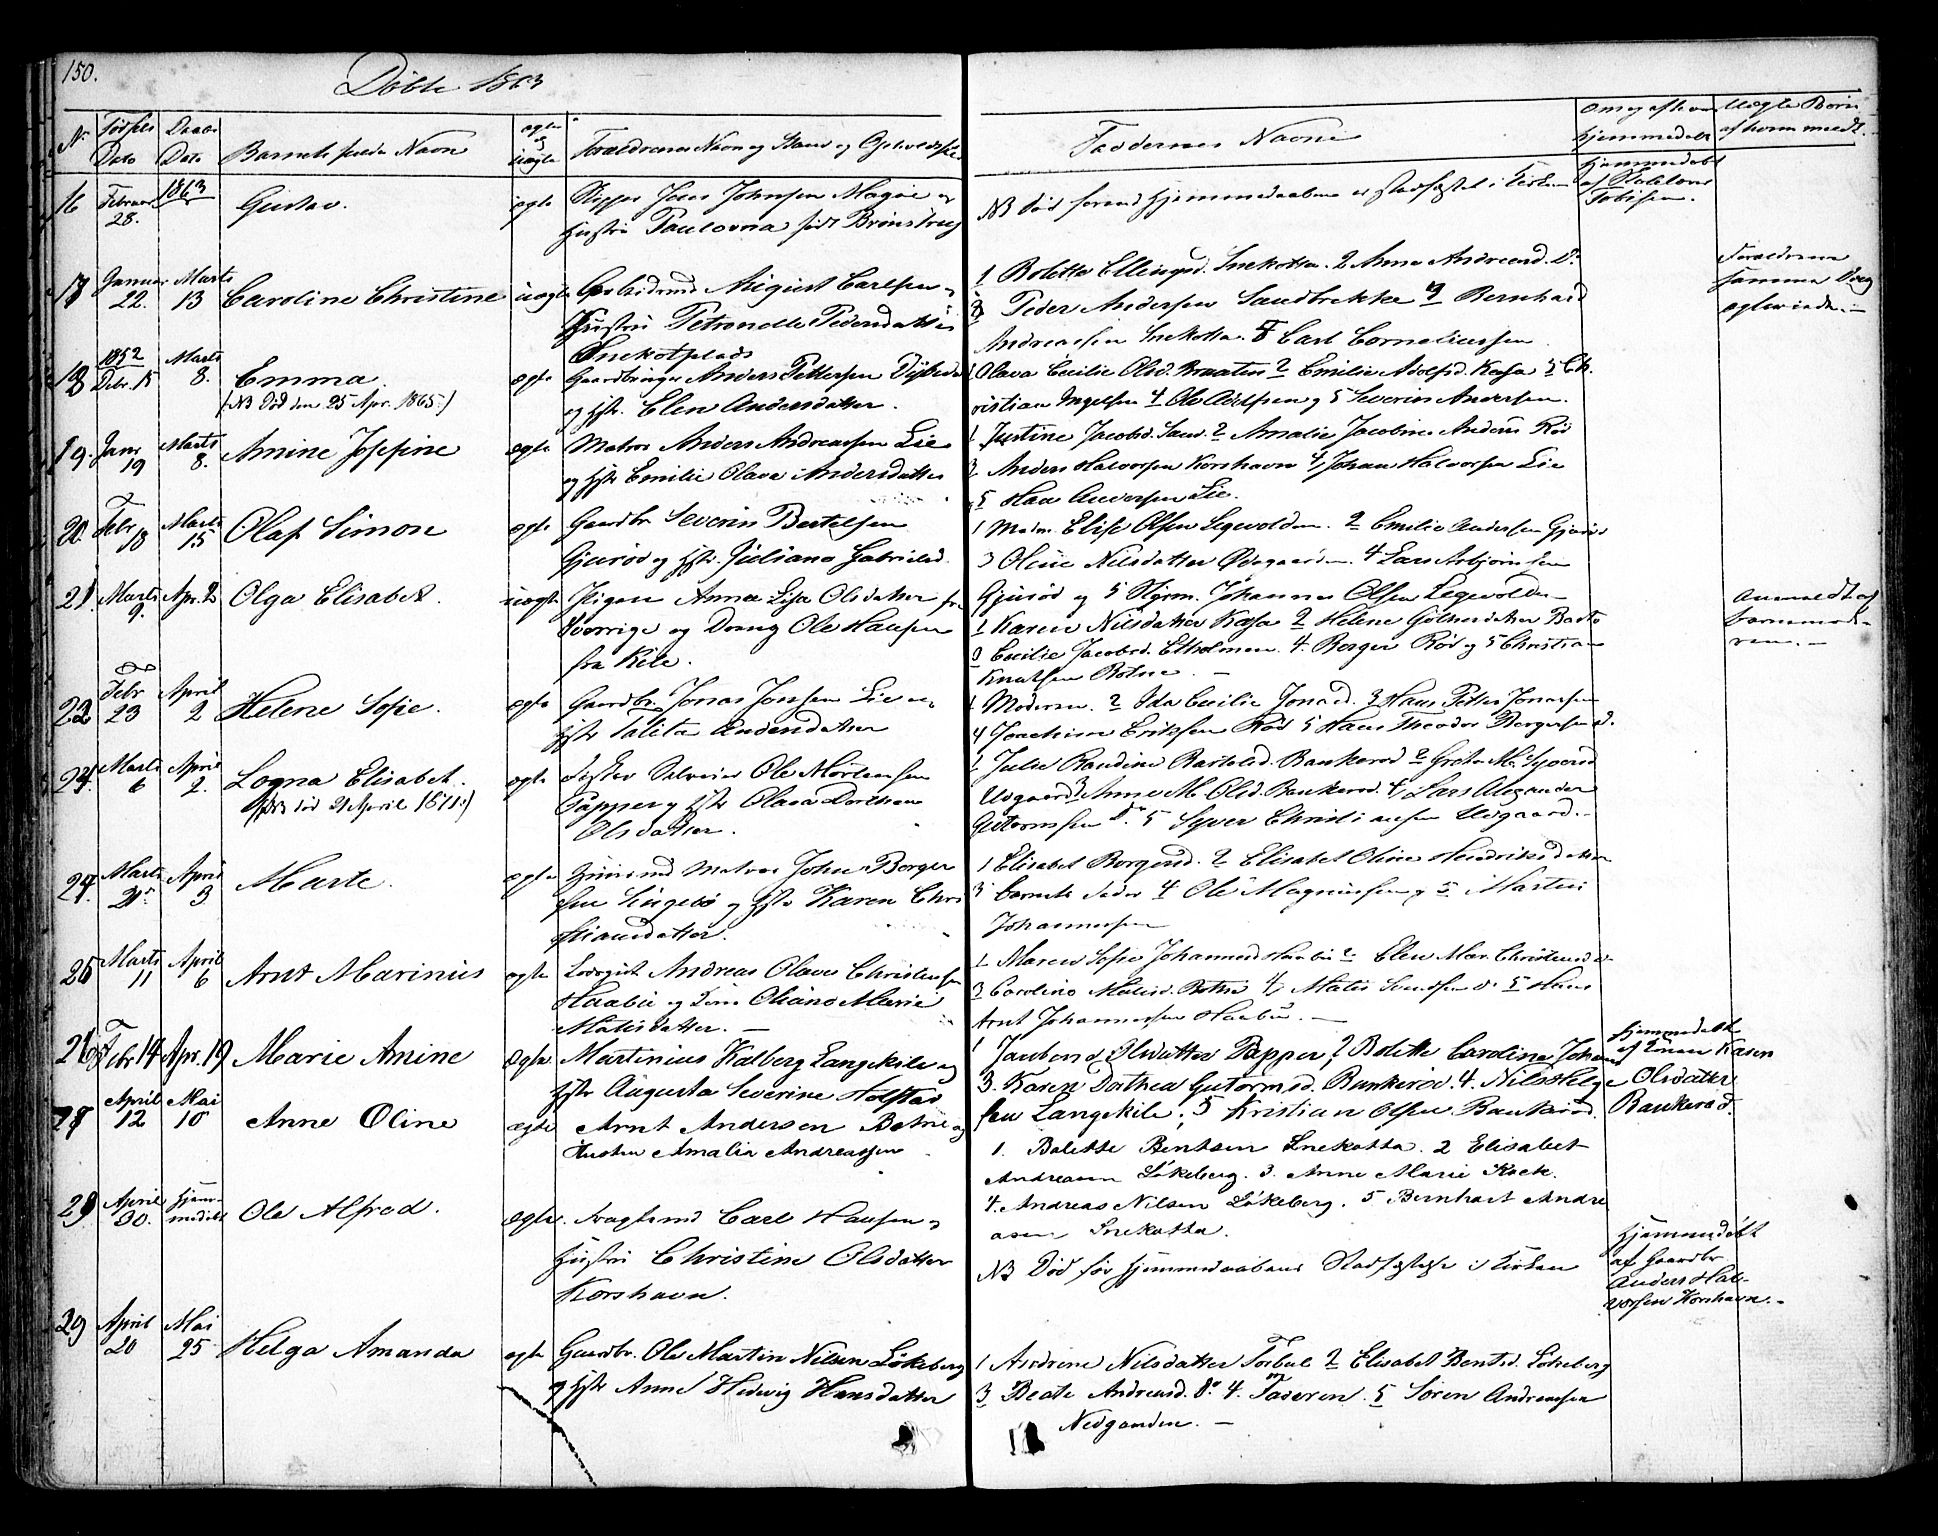 150.
Döbte 1863
No
Fødsels Dato
Daabs Dato
Barnets fulde Navn
ægte og uægte
Forældrenes Navn og Stand og Opholdssted
Faddernes Navne
Om og af hvem hjemmedøbt
Uægte Børn af hvem meldt.
16 Februar 28. 1863 Gustav. ægte Skipper Jens Johnsen Magøe og
Hustru Paulovna født Brønstrup
NB død forend hjemmedaaben er stadfæstet i Kirken
hjemmedøbt af Tobisen.
17 Januar 22. Marts 13 Caroline Christine uægte August Carlsen og
Hustru Petronelle Pedersdatter
Snekotplads
1 Bolette Ellingsd. Snekotta. 2 Anna Andreasd. Do
3 Peder Andersen Sandbrekke 4 Bernhard
Andreassen Snekotta. 5 Carl Corneliussen
Forældrene
samme Dag
ægteviede.
18 1852 Debr. 15 Marts 8. Emma. ægte Gaardbruger Anders Pettersen
(NB Død den 25 Apr. 1865.)
og Hstr. Elen Andersdatter.
1 Olava Cecilie Olsd. Braaten 2 Emilie Adolfsd. Kasa 3 Ch.
ristian Ingelsen 4 Ole Adolfsen og 5 Severin Andersen.
19. Janr 19 Marts 8. Amine Josefine ægte Matros Anders Andreassen Lie
og Hstr Emilie Olava Andersdatter
1 Justine Jacobsd. Sand. 2 Amalie Jacobine Anders Rød
3 Anders Halvorsen Korshavn 4 Johan Halvorsen Lie
5 Hans Andersen Lie.
20. Febr 18 Marts 15 Olaf Simon ægte Gaardbr Severin Bertelsen
Gjurød og Hstr. Juliane Gabrielsd.
1 Madm. Elise Olsen Legevolden. 2 Emilie Andersen Gjurød
3 Oline Nilsdatter Ødegaarden. 4 Lars Asbjørnsen
Gjurød og 5 Styrm. Johannes Olsen Legevolden
21 Marts 9. Apr. 2 Olga Elisabet. uægte Pigen Anna Lisa Olsdatter fra
Sverrige og Dreng Ole Hansen
fra Kile.
1 Karen Nilsdatter Kasa 2 Helene Gulbrandsdatter Basto
3 Cecilie Jacobsd. Ekholmen. 4. Borger Rød og 5 Christian
Knutsen Botne.
Anmeldt af
Barnemode-
ren.
22 Febr 23 April 2 Helene Sofie. ægte Gaardbr. Jonas Jonsen Lie og
Hstr Talita Andersdatter
1 Moderen. 2 Ida Cecilie Jonasd. 3 Hans Petter Jonassen
4 Joachim Eriksen Rød 5 Hans Theodor Borgersen d.
24. Marts 6 April 2. Logna Elisabet. ægte Ole Mortensen
(NB død 21 April 1871.)
Papper og Hstr Olava Dorthea
Olsdatter.
1 Julie Randine Bartolsd. Bankerød 2 Grete M. Syversd
Ødgaard 3 Anne M. Olsd. Bankerød. 4 Lars Alexander
Gutormsen do. 5 Syver Christiansen Ødgaard.
24. Marts 21 April 3 Marte. ægte Huusmand Matros John Borger
sen Singebø og Hstr Karen Chri
stiansdatter.
1 Elisabet Borgersd. 2 Elisabet Oline Hendriksdatter
3 Barnets Fader 4 Ole Magnussen og 5 Martin
Johannessen
25 Marts 11 April 6 Arnt Marinus ægte Andreas Olaus Christensen
Haabu og Hstru Oliane Marie
Matisdatter.
1 Maren Sofie Johannesd Haabu 2 Elen Mar. Christensd do
3 Caroline Matisd. Botne 4 Matis Svendsen do 5 Hans
Arnt Johannessen Haabu.
26 Febr 14 Apr. 19 Marie Amine Ægte Martinius Kalberg Langekile og
Hstr Augusta Severine Holstad
1 Olsdatter Papper 2 Bolette Caroline Johansd
3. Karen Dorthea Gutormsd. Bankerød. 4. Nils Helge
sen Langekile; 5 Kristian Olsen Bankerød.
hjemmedøbt
af Enken Karen
Olsdatter
Bankerød.
27 April 12 Mai 10 Anne Oline ægte Arnt Andersen Botne og
Hustru Amalia Andreassen
1. Bolette Bentsen Snekotta. 2 Elisabet
Andreasen Løkeberg. 3. Anne Marie Kock.
4. Andreas Nilsen Løkeberg. 5 Bernhart Andre
asen Snekotta.
28 April 30. hjem-
medøbt Ole Alfred. Ægte. Carl Hansen og
Hustru Christine Olsdatter
Korshavn.
NB Død før Hjemmedaabens Stadfæstelse i Kirken
hjemmedøbt
af Gaardbr
Anders Hal-
vorsen Korshavn.
29 April 20 Mai 25 Helga Amanda ægte Gaardbr. Ole Martin Nilsen Løkeberg
og Hstr Anne Hedvig Hansdatter
1 Andrine Nilsdatter Torbal 2 Elisabet Bentsd. Løkeberg
3 Beate Andreasd. do. 4. Faderen. 5 Søren Andreassen
Nedgarden.